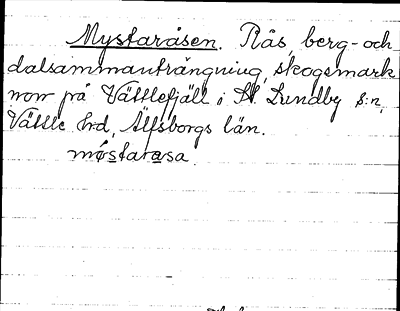 Mystaråsen. Rås, berg- och
dalsammanträngning, skogsmark
norr på Vättlefjäll i St. Lundby s:n,
Vättle hd, Älfsborgs län.
møstarasa